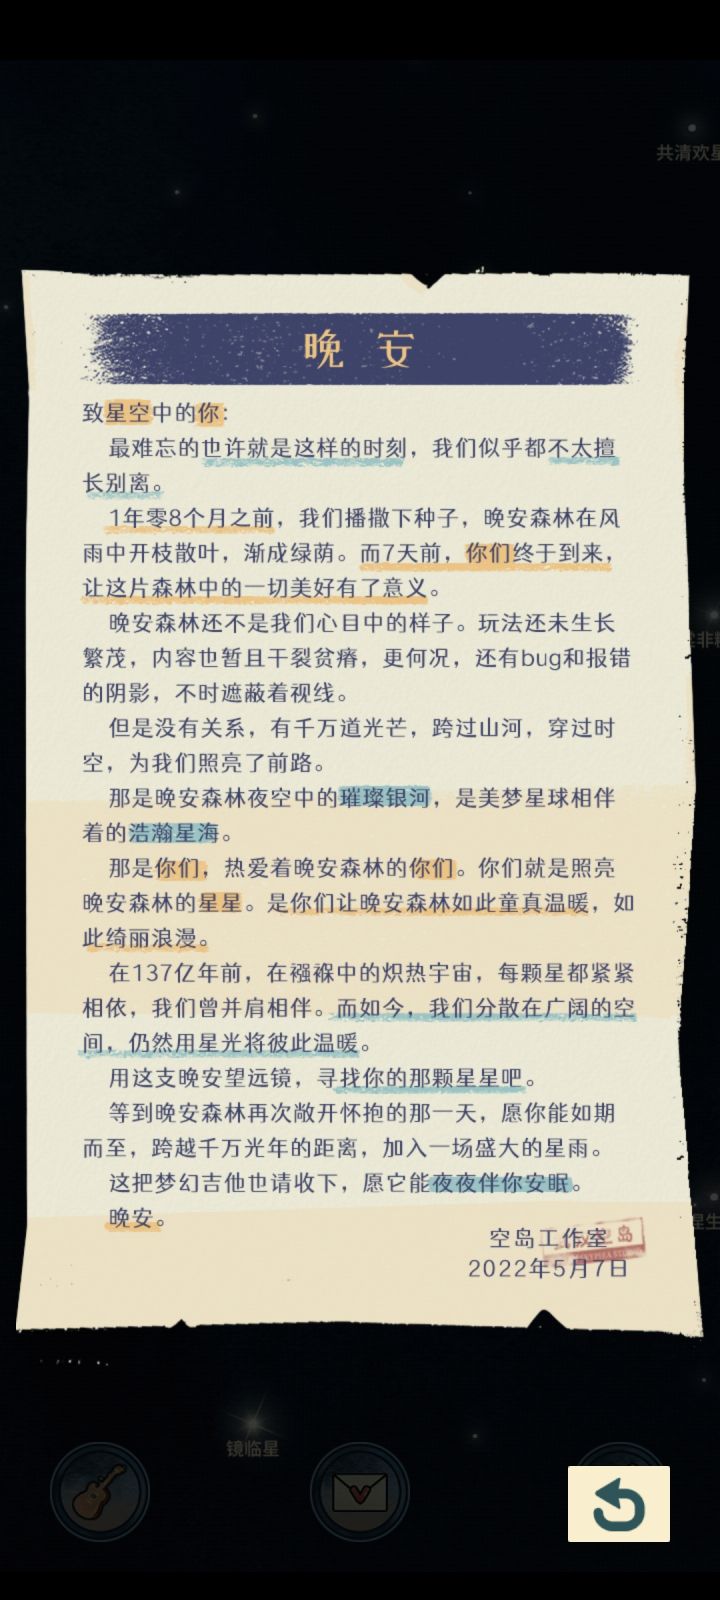 共清欢星
晚安
致星空中的你：
最难忘的也许就是这样的时刻，我们似乎都不太擅
长别离。
1年零8个月之前，我们播撒下种子，晚安森林在风
雨中开枝散叶，渐成绿荫。而7天前，你们终于到来，
让这片森林中的一切美好有了意义。
晚安森林还不是我们心目中的样子。玩法还未生长
繁茂，内容也暂且干裂贫瘠，更何况，还有bug和报错
的阴影，不时遮蔽着视线。
但是没有关系，有千万道光芒，跨过山河，穿过时
空，为我们照亮了前路。
那是晚安森林夜空中的璀璨银河，是美梦星球相伴
着的浩瀚星海。
那是你们，热爱着晚安森林的你们。你们就是照亮
晚安森林的星星。是你们让晚安森林如此童真温暖，如
此绮丽浪漫。
在137亿年前，在襁褓中的炽热宇宙，每颗星都紧紧
相依，我们曾并肩相伴。而如今，我们分散在广阔的空
间，仍然用星光将彼此温暖。
用这支晚安望远镜，寻找你的那颗星星吧。
等到晚安森林再次敞开怀抱的那一天，愿你能如期
而至，跨越千万光年的距离，加入一场盛大的星雨。
这把梦幻吉他也请收下，愿它能夜夜伴你安眠。
晚安。
空岛工作室
2022年5月7日
镜临星